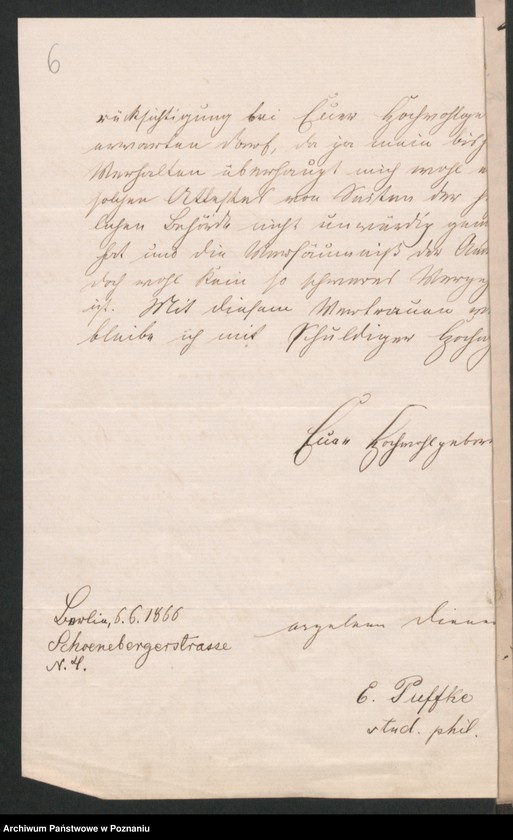 6
rücksichtigung bei Euer Hochwohlge
erwarten darf, da ja mein bish
Verhalten überhaupt mich wohl e
solchen Attestes von Seiten der
lichen Behörde nicht unwürdig gem
hat und die Versäumniß der An
doch wohl kein so schweres Verge
ist. Mit diesem Vertrauen ver
bleibe ich mit Schuldiger Hocha
Euer Hochwohlgebor
Berlin, 6.6.1866
Schoenebergerstrasse
N. 4.
ergebener Diener
E. Puffke
stud. phil.
Archiwum Państwowe w Poznaniu